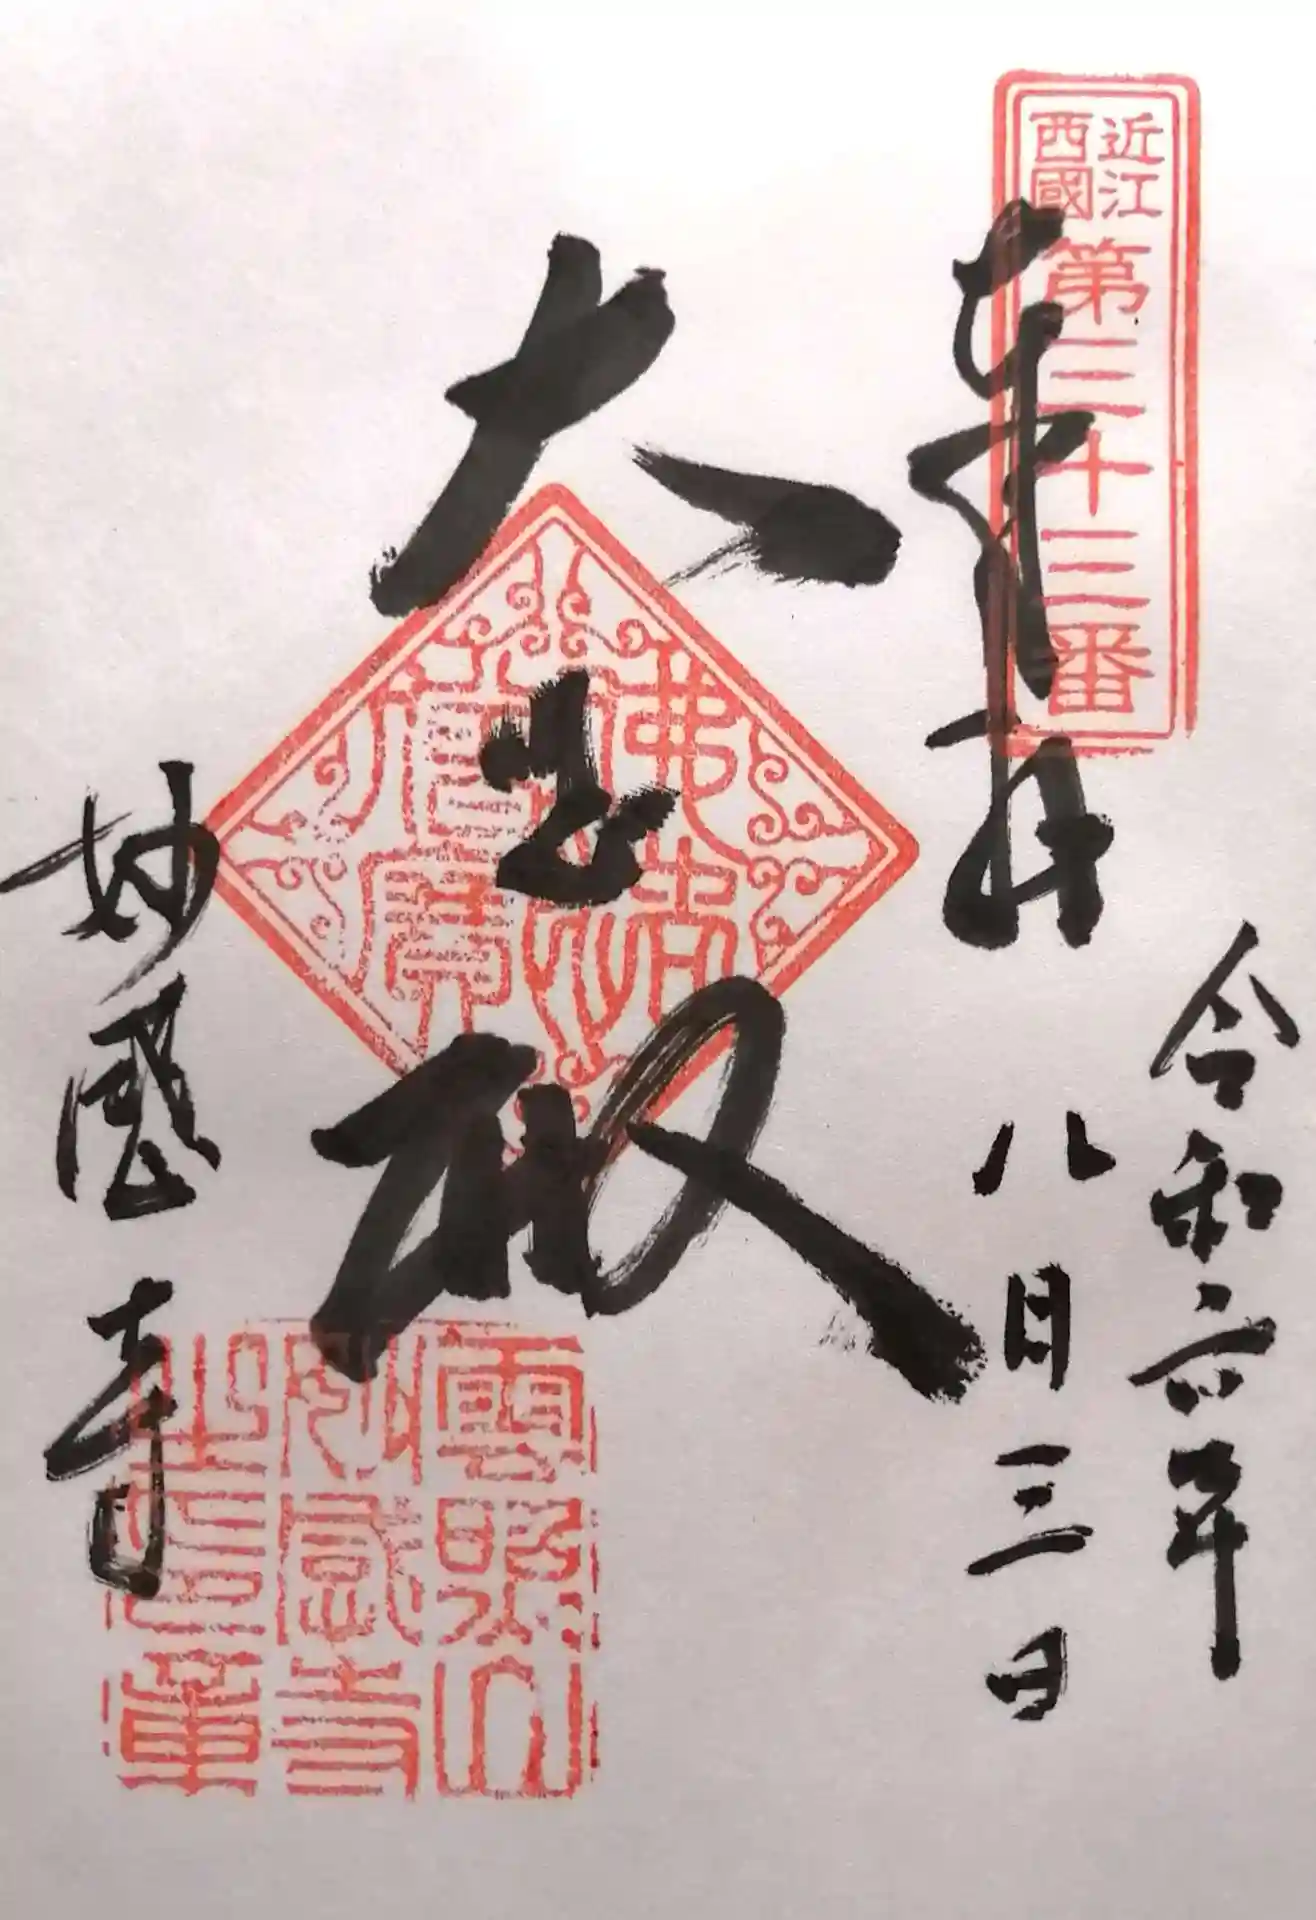 近江
西國
第三十三番
奉拝
令和六年
八月三日
大悲殿
佛法僧寶
妙感寺
雲照山
妙感寺
之印章